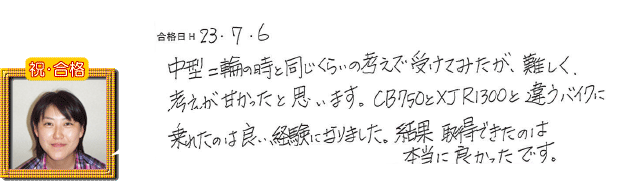 合格日 H 23・7・6
祝・合格
中型二輪の時と同じくらいの考えで受けてみたが、難しく、
考えが甘かったと思います。CB750とXJR1300と違うバイクに
乗れたのは良い経験になりました。結果 取得できたのは
本当に良かったです。